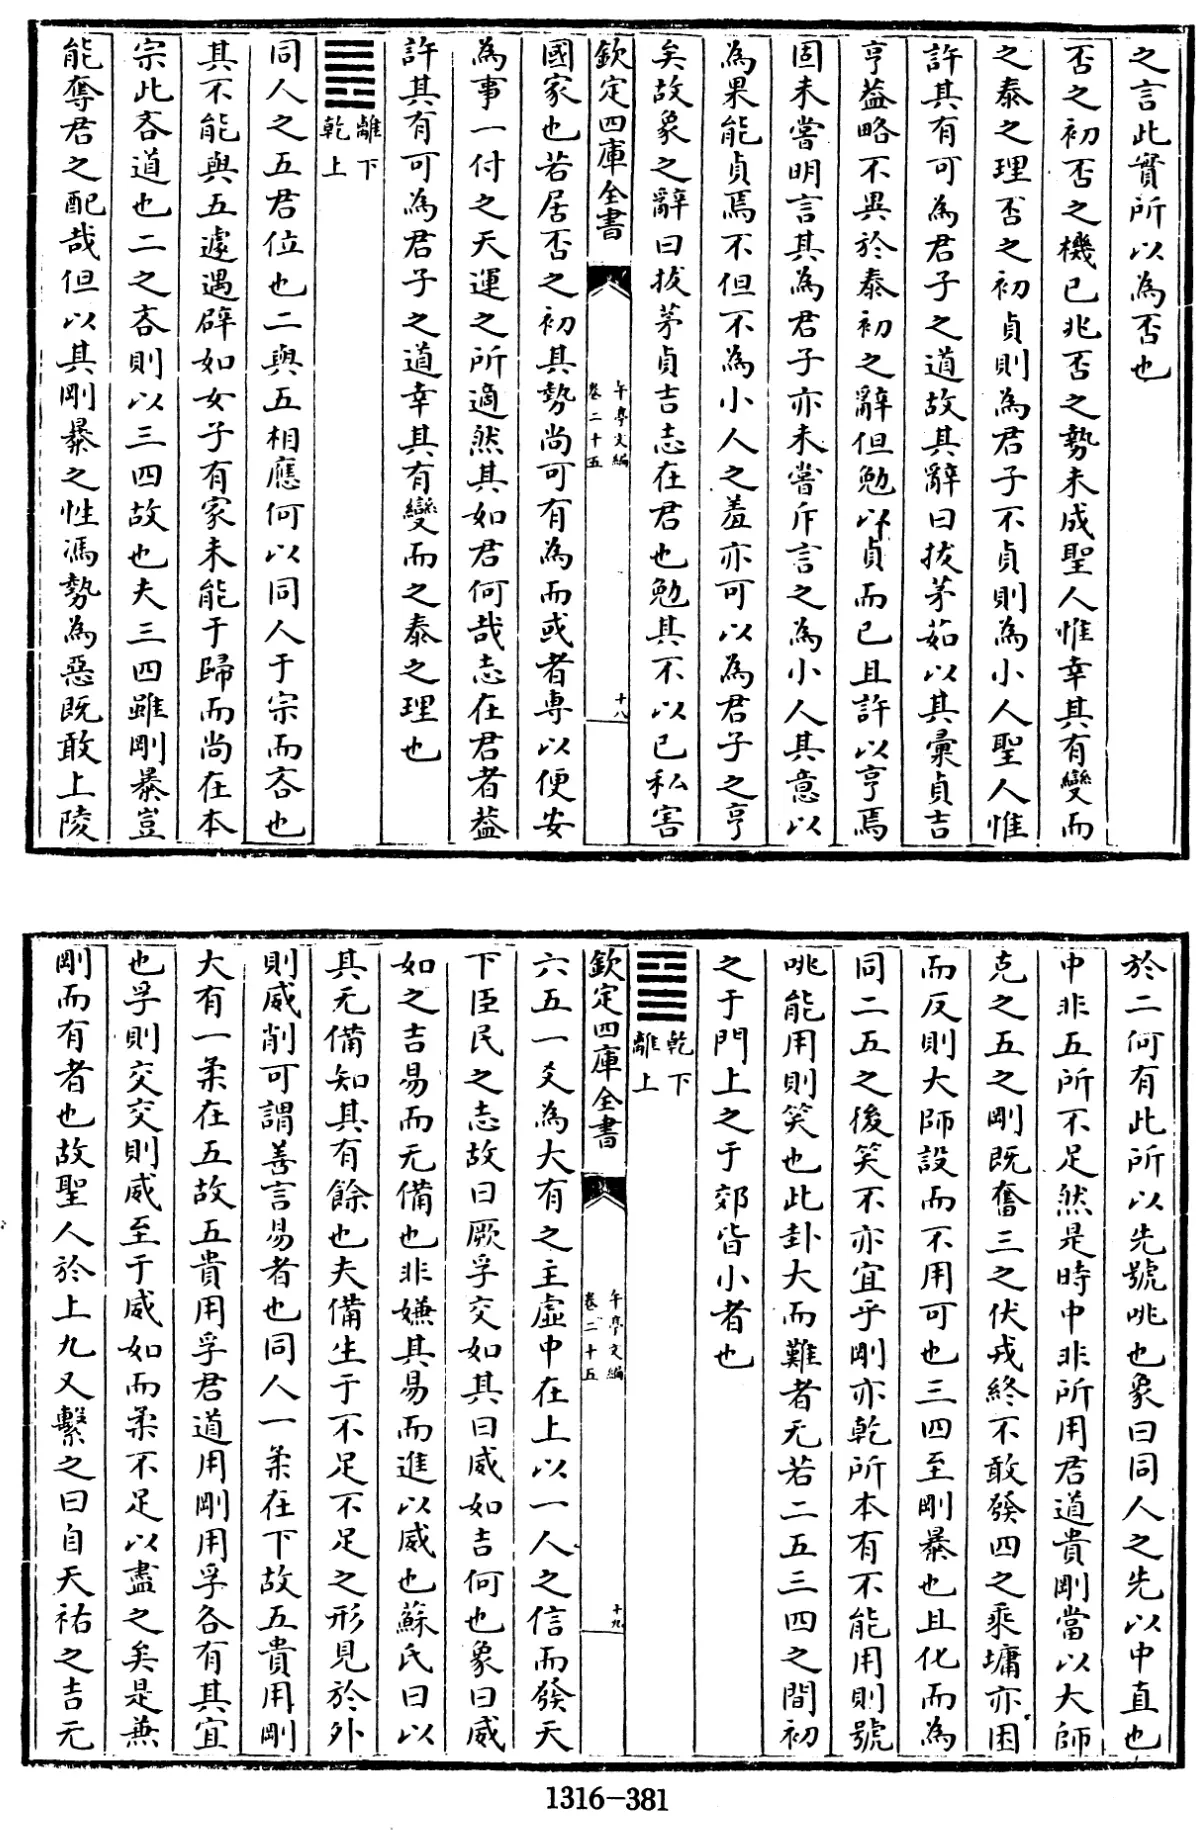 之言此實所以為否也
否之初否之機已兆否之勢未成聖人惟幸其有變而
之泰之理否之初貞則為君子不貞則為小人聖人惟
許其有可為君子之道故其辭曰拔茅茹以其彙貞吉
亨葢略不異於泰初之辭但勉以貞而已且許以亨焉
固未嘗明言其為君子亦未嘗斥言之為小人其意以
為果能貞焉不但不為小人之羞亦可以為君子之亨
矣故象之辭曰拔茅貞吉志在君也勉其不以已私害
欽定四庫全書
午亭文編
卷二十五
十八
國家也若居否之初其勢尚可有為而或者専以便安
為事一付之天運之所適然其如君何哉志在君者葢
許其有可為君子之道幸其有變而之泰之理也
離下
乾上
同人之五君位也二與五相應何以同人于宗而吝也
其不能與五遽遇辟如女子有家未能于歸而尚在本
宗此吝道也二之吝則以三四故也夫三四雖剛暴豈
能奪君之配哉但以其剛暴之性馮勢為惡既敢上陵
於二何有此所以先號咷也象曰同人之先以中直也
中非五所不足然是時中非所用君道貴剛當以大師
克之五之剛既奮三之伏戎終不敢發四之乘墉亦困
而反則大師設而不用可也三四至剛暴也且化而為
同二五之後笑不亦宜乎剛亦乾所本有不能用則號
咷能用則笑也此卦大而難者无若二五三四之間初
之于門上之于郊皆小者也
乾下
離上
欽定四庫全書
午亭文編
卷二十五
十九
六五一爻為大有之主虛中在上以一人之信而發天
下臣民之志故曰厥孚交如其曰威如吉何也象曰威
如之吉易而无備也非嫌其易而進以威也蘇氏曰以
其无備知其有餘也夫備生于不足不足之形見於外
則威削可謂善言易者也同人一柔在下故五貴用剛
大有一柔在五故五貴用孚君道用剛用孚各有其宜
也孚則交交則威至于威如而柔不足以盡之矣是兼
剛而有者也故聖人於上九又繫之曰自天祐之吉无
1316-381